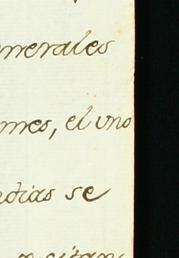 nerales
mes, el uno
dias se